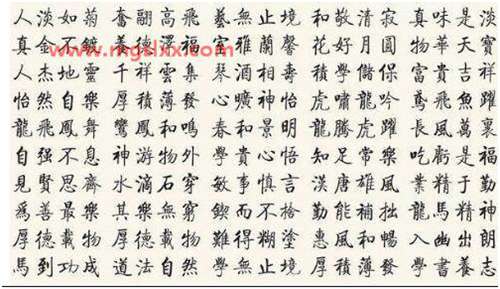 人淡如菊 奮翮高飛 藝無止境 和敬清寂 真味是淡
真金不鍍 養德 家 室雅蘭馨 花好月圓 物華天寶
www.mgslxx.com
人杰地靈 千祥雲集 琴酒相壽 積學儲保 富貴吉祥
怡然自樂 厚積薄發 心曠神怡 虎嘯龍吟 鳶飛魚躍
龍飛鳳舞 鸞鳳和鳴 春和景明 龍騰虎躍 長風萬裏
自强不息 神游物外 學貴心悟 知足常樂 吃虧是福
見賢思齊 水滴石穿 敏事慎言 漢唐雄風 業精于勤
爲善最樂 其樂無窮 鍥而不捨 勤能補拙 龍馬精神
厚德載物 厚德載物 難得糊塗 惠風和暢 入幽出朗
馬到功成 道法自然 學無止境 厚積薄發 學書養志